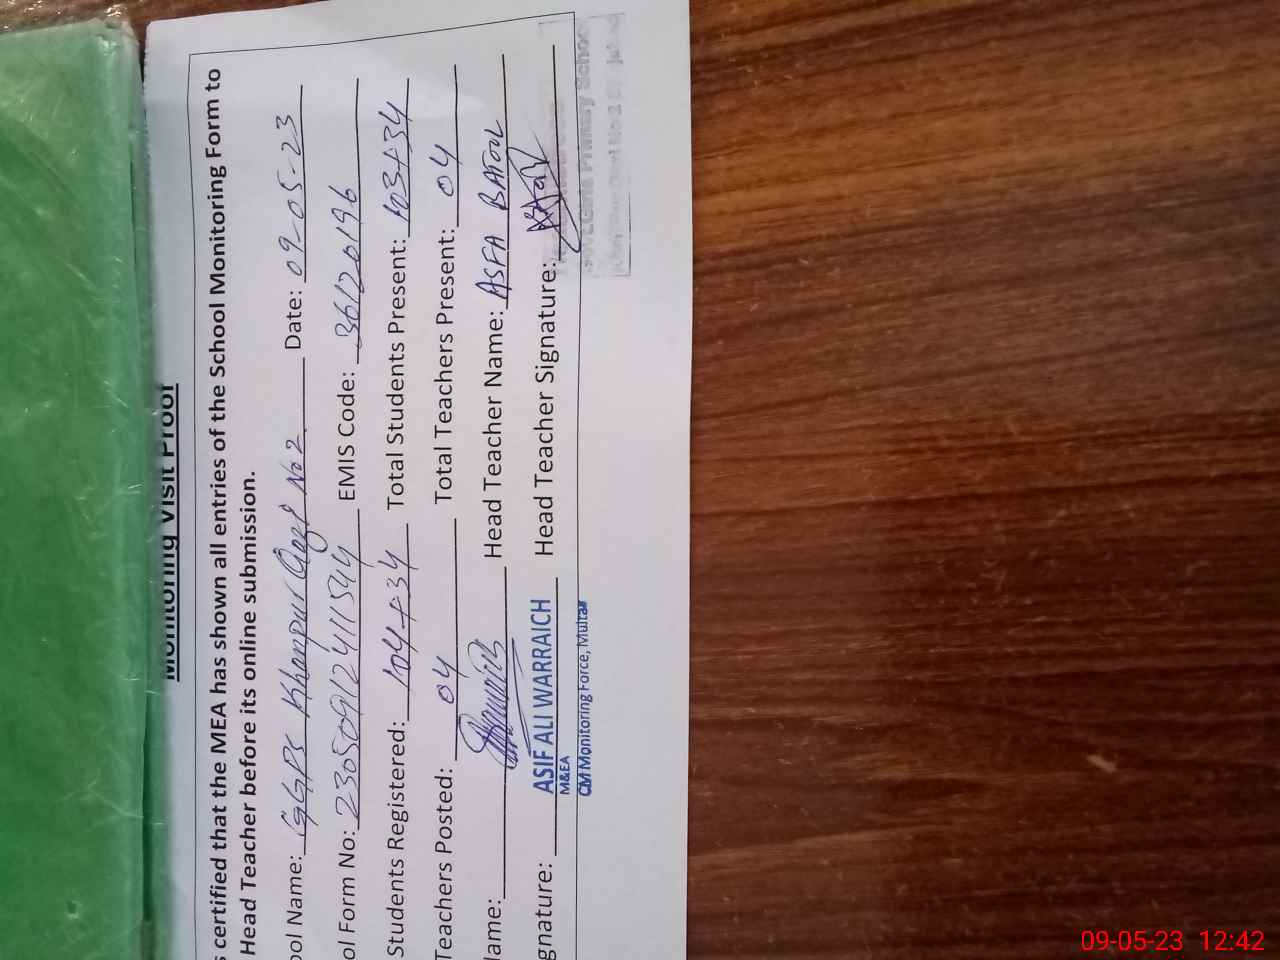 Monitoring Visit Proof
certified that the MEA has shown all entries of the School Monitoring Form to
Head Teacher before its online submission.
ool Name: GGPS Khanpur Qazi No 2 Date: 09-05-23
ol Form No: 230509124111544 EMIS Code: 36120196
Students Registered: 104+34 Total Students Present: 103+34
Teachers Posted: 04 Total Teachers Present: 04
ame: Head Teacher Name: ASFA BATOOL
gnature: Head Teacher Signature:
ASIF ALI WARRAICH
M&EA
CM Monitoring Force, Multan
Govt. Girls Primary School
09-05-23 12:42